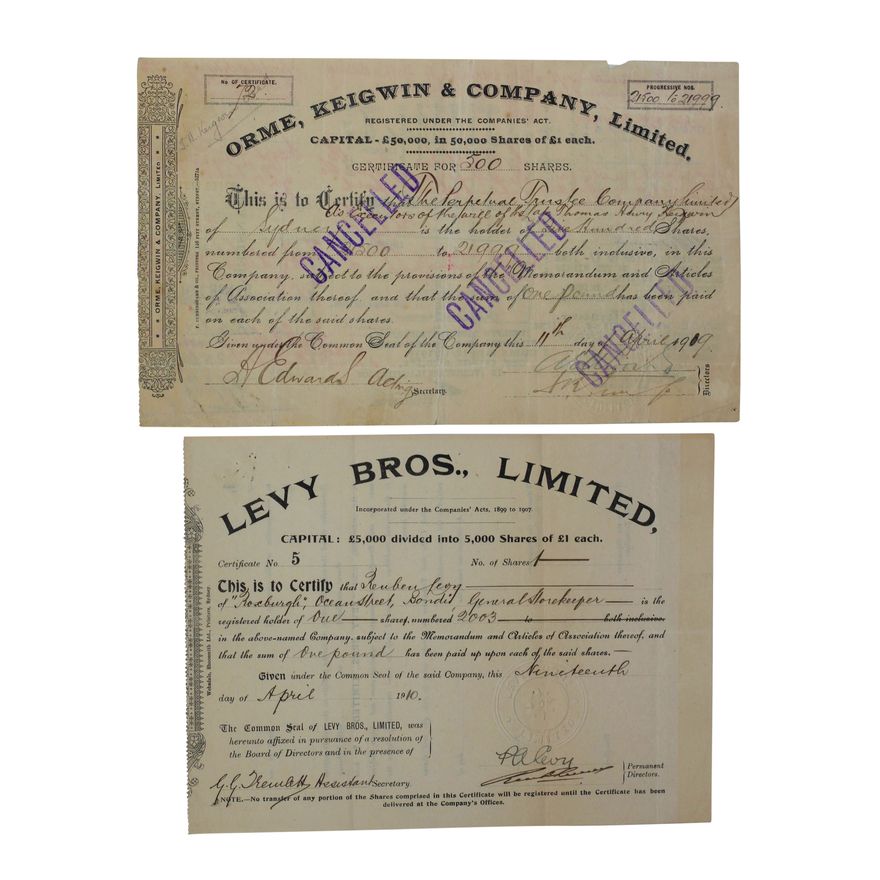 No OF CERTIFICATE.
72
PROGRESSIVE NOS.
21500 to 21999
ORME, KEIGWIN & COMPANY, Limited.
REGISTERED UNDER THE COMPANIES' ACT.
CAPITAL - £50,000, in 50,000 Shares of £1 each.
CERTIFICATE FOR 500 SHARES.
This is to Certify that The Perpetual Trustee Company Limited
As Executors of the will of Thomas Henry Keigwin
of Sydney is the holder of Hundred Shares,
numbered from 500 to 21999 both inclusive, in this
Company, subject to the provisions of the Memorandum and Articles
of Association thereof, and that the sum of One pound has been paid
on each of the said shares.
Given under the Common Seal of the Company this 11th day of April 1909
A Edwards Acting Secretary.
Directors
CANCELLED
CANCELLED
CANCELLED
ORME, KEIGWIN & COMPANY, LIMITED
LEVY BROS., LIMITED,
Incorporated under the Companies' Acts, 1899 to 1907.
CAPITAL: £5,000 divided into 5,000 Shares of £1 each.
Certificate No. 5 No. of Shares 1
This is to Certify that Reuben Levy
of "Roxburgh", Ocean Street, Bondi General Storekeeper is the
registered holder of One shares, numbered 2003 to both inclusive.
in the above-named Company, subject to the Memorandum and Articles of Association thereof, and
that the sum of One pound has been paid up upon each of the said shares.
Given under the Common Seal of the said Company, this Nineteenth
day of April 1910.
The Common Seal of LEVY BROS., LIMITED, was
hereunto affixed in pursuance of a resolution of
the Board of Directors and in the presence of
Levy
Permanent
Directors.
Assistant Secretary.
NOTE.—No transfer of any portion of the Shares comprised in this Certificate will be registered until the Certificate has been
delivered at the Company's Offices.
Websdale, Shoosmith Ltd., Printers, Sydney